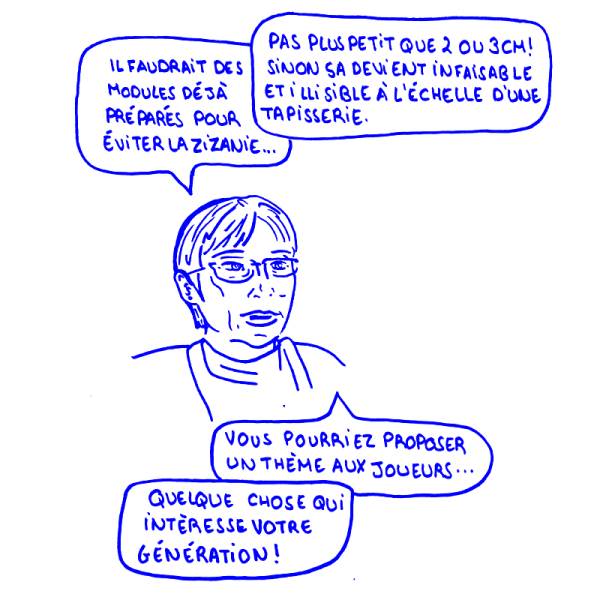 IL FAUDRAIT DES
MODULES DÉJÀ
PRÉPARÉS POUR
ÉVITER LA ZIZANIE...
PAS PLUS PETIT QUE 2 OU 3CM!
SINON ÇA DEVIENT INFAISABLE
ET ILLISIBLE À L'ÉCHELLE D'UNE
TAPISSERIE.
VOUS POURRIEZ PROPOSER
UN THÈME AUX JOUEURS...
QUELQUE CHOSE QUI
INTÈRESSE VOTRE
GÉNÉRATION!